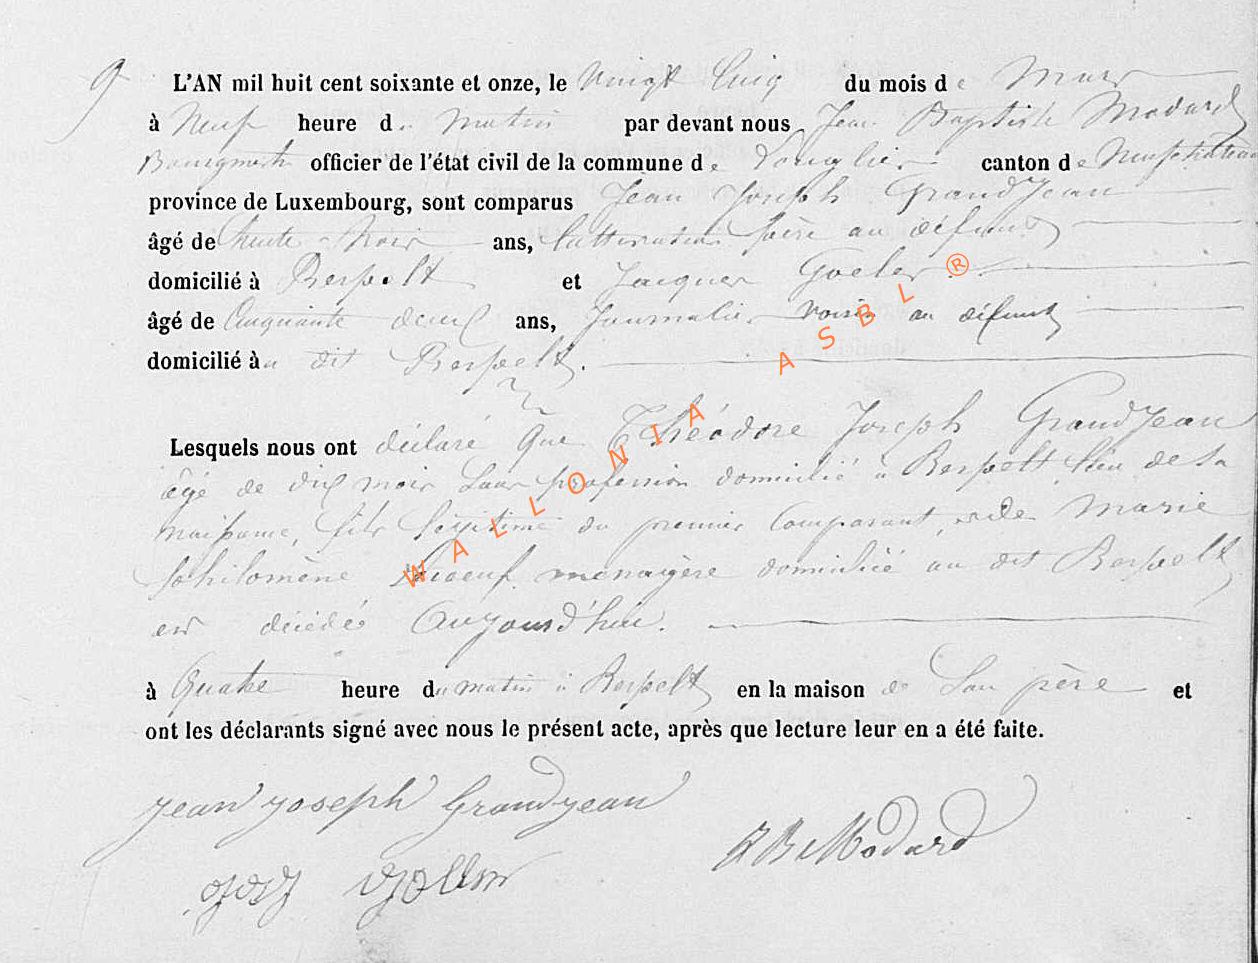 9 L'AN mil huit cent soixante et onze, le Vingt Cinq du mois de Mars
à Neuf heure du matin par devant nous Jean Baptiste Modard
Bourgmestre officier de l'état civil de la commune de Longlier canton de Neufchateau
province de Luxembourg, sont comparus Jean Joseph GrandJean
âgé de trente trois ans, cultivateur père au défunt
domicilié à Respelt et Jacques
âgé de Cinquante deux ans, Journalier voisin au défunt
domicilié à au dit Respelt.
Lesquels nous ont déclaré que Théodore Joseph GrandJean
âgé de dix mois sans profession domicilié à Respelt lieu de sa
naissance, fils légitime du premier Comparant et de Marie
Philomène menagère domicilié au dit Respelt
est décédé Aujourd'hui.
à Quatre heure du matin à Respelt en la maison de son père et
ont les déclarants signé avec nous le présent acte, après que lecture leur en a été faite.
Jean Joseph Grandjean
JB Modard
WALLONIA ASBL ®